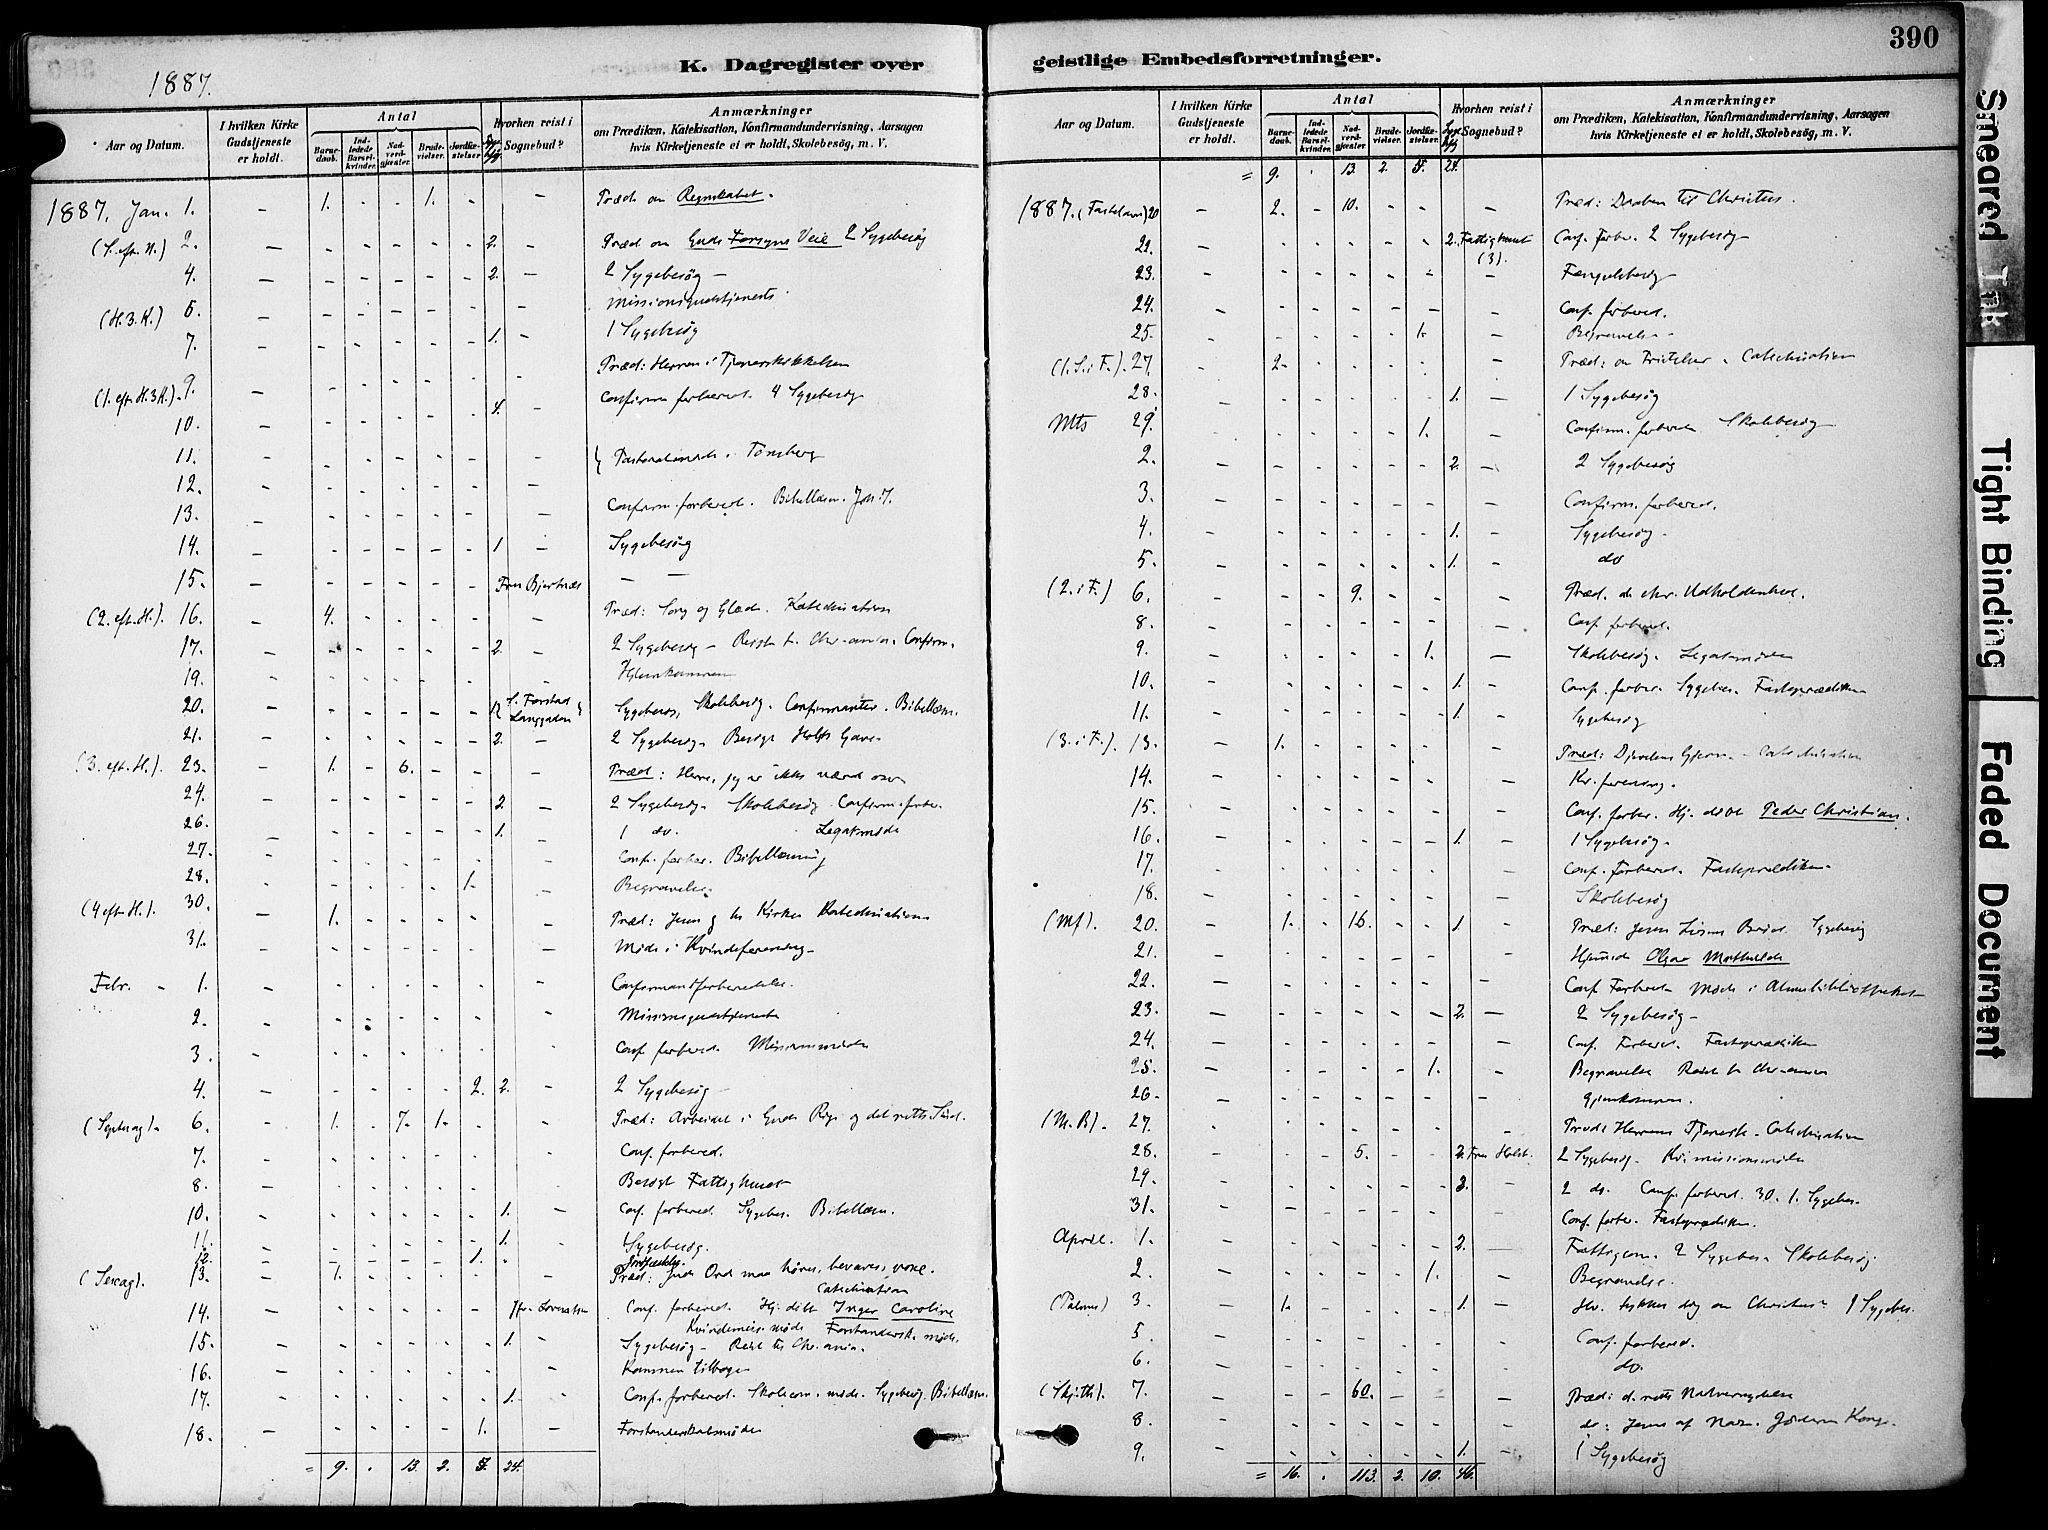 390
K. Dagregister over
geistlige Embedsforretninger.
1887.
Aar og Datum.
I hvilken Kirke Gudstjeneste er holdt.
Antal
Barnedaab.
Indledede Barselkvinder.
Nadverdgjester.
Brudevielser.
Jordfæstelser.
Hvorhen reist i Sognebud?
Anmærkninger
om Prædiken, Katekisation, Konfirmandundervisning, Aarsagen
hvis Kirketjeneste ei er holdt, Skolebesög, m. V.
1887, Jan. 1. - 1. - - 1. - - Præd. om Regnskabet.
(S. eft. N.) 2. - - - - - - 2. - Præd om Guds Forsyns Veie 2 Sygebesøg
4. - - - - - - 2. - 2 Sygebesøg -
(H.3.K.) 6. - - - - - - - Missionsgudstjeneste
7. - - - - - - 1. - 1 Sygebesøg
(1. eft. H.3K.). 9. - - - - - - Præd: Herren i Tjenerskikkelsen
10. - - - - - - 4. - Confirm forbered. 4 Sygebesøg
11. - - - - - - - Pastoralmøde i Tønsberg
12. - - - - - - -
13. - - - - - - - Confirm. forbered. Bibellæsn. Joh. 7.
14. - - - - - - 1 - Sygebesøg
15. - - - - - - Fru Bjertnæs - -
(2. eft. H.). 16. - 4. - - - - - Præd: Sorg og Glæde. Katechisation
17. - - - - - - 2. - 2 Sygebesøg - Reist t. Chr.ania. Confirm.
19. - - - - - - - Hjemkommen
20. - - - - - - Langgaden Sygebesøg, Skolebesøg. Confirmanter. Bibellæsn.
21. - - - - - - 2. - 2 Sygebesøg. Besøgt Holts Gave
(3. eft. H.). 23. - 1. - 6. - - - Præd: Herre, jeg er ikke værd osv
24. - - - - - - 2. - 2 Sygebesøg. Skolebesøg Confirm. forb.
26. - - - - - - 1. - 1 do. Legatmøde
27. - - - - - - - Conf. forber. Bibellæsning
28. - - - - - 1. - Begravelse
(4 eft H.). 30. - 1. - - - - - Præd: Jesus og hs Kirke Katechisation
31. - - - - - - - Møde i Kvindeforening -
Febr. - 1. - - - - - - - Confirmantforberedelse.
2. - - - - - - - Missionsgudstjeneste
3. - - - - - - - Conf. forbered. Missionsmøde
4. - - - - - 2. 2. - 2 Sygebesøg -
(Septuag). 6. - 1. - 7. 1. - - Præd: Arbeidet i Guds Rige og det rette Sind.
7. - - - - - - - Conf. forbered.
8. - - - - - - - Besøgt Fattighuset
10. - - - - - - 1. - Conf. forbered. Sygebes. Bibellæsn.
11. - - - - - - 1. - Sygebesøg.
12. - - - - - 1. - Jordfæstelse
(Sexag). 13. - 1. - - - - - Præd: Guds Ord maa høres, bevares, voxe.
Catechisation
14. - - - - - - Conf. forbered. Hj. døbt Inger Caroline
Kvindemiss. møde Forstandersk. møde.
15. - - - - - - 1. - Sygebesøg - Reist til Chr.ania.
16. - - - - - - - Kommen tilbage
17. - - - - - - 1. - Conf. forbered. Skolecom. møde. Sygebesøg. Bibellæsn.
18. - - - - - 1. - Forstanderskabsmøde
= 9. . 13. 2. 5. 24.
Aar og Datum.
I hvilken Kirke Gudstjeneste er holdt.
Antal
Barnedaab.
Indledede Barselkvinder.
Nadverdgjester.
Brudevielser.
Jordfæstelser.
Hvorhen reist i Sognebud?
Anmærkninger
om Prædiken, Katekisation, Konfirmandundervisning, Aarsagen
hvis Kirketjeneste ei er holdt, Skolebesög, m. V.
= 9. . 13. 2. 5. 24.
1887. (Fastelavn) 20 - 2. - 10. - - - Præd: Daaben til Christus.
22. - - - - - - 2. Fattighuset (3). Conf. forber. 2 Sygebesøg
23. - - - - - - - Fængselsbesøg
24. - - - - - - - Conf. forbered.
25. - - - - - 1. - Begravelse
(1. S. i F.). 27. - 2. - Præd: om Fristelser. Catechisation
28. - - - - - - 1. - 1 Sygebesøg
Mts 29. - - - - - 1. - Confirm. forbered Skolebesøg
2. - - - - - - 2. - 2 Sygebesøg
3. - - - - - - - Confirm. forbered.
4. - - - - - - 1. - Sygebesøg -
5. - - - - - - 1. - do
(2. i F.) 6. - - - 9. - - - Præd. chr. Udholdenhed.
8. - - - - - - - Conf. forbered.
9. - - - - - 1. - Skolebesøg. Legatmøde
10. - - - - - - 1. - Conf. forber. Sygebes. Fasteprædiken
11. - - - - - - 1. - Sygebesøg
(3. i F.). 13. - 1. - - - - - Præd: Djævelens Gjern. - Catechisation
14. - - - - - - - Kv. forening.
15. - - - - - - - Conf. forber. Hj. døbt Peder Christian.
16. - - - - - - 1. - 1 Sygebesøg.
17. - - - - - - - Conf. forbered. Fasteprædiken
18. - - - - - - - Skolebesøg
(Mf). 20. - 1. - 16. - - 1. - Præd: Jesus Livsens Brød. Sygebesøg
21. - - - - - - - Hjemmed. Olga Mathilde
22. - - - - - - - Conf Forbered Møde i Almuebibliotheket
23. - - - - - - 2. - 2 Sygebesøg -
24. - - - - - - - Conf. Forbered. Fasteprædiken
25. - - - - - 1. - Begravelse Reist t. Chr.ania
26. - - - - - - - Hjemkommen.
(M.B). 27. - - - - - - - Præd: Herrens Tjeneri. - Catechisation
28. - - - 5. - - 2. Fru Holst. 2 Sygebesøg - Kv.missionsmøde
29. - - - - - - 3. - 2 do. Conf. forbered. 30. 1. Sygebes.
31. - - - - - - Conf. forber. Fasteprædiken.
April. 1. - - - - - - 2. - Fattigcom. 2 Sygebes. Skolebesøg
2. - - - - - 1. - Begravelse.
(Palmes) 3. - 1. - - - - 1. - Hv. tykkes dig om Christus? 1 Sygebes.
5. - - - - - - - Conf. forbered.
6. - - - - - - - do.
(Skjth). 7. - - - 60. - - - Præd: d. rette Nadverydelse
8. - - - - - - - do: Jesus af Naz. Jødernes Konge.
9. - - - - - - 1. - 1 Sygebesøg
= 16. . 113. 2. 10. 46.
Smeared Ink
Tight Binding
Faded Document